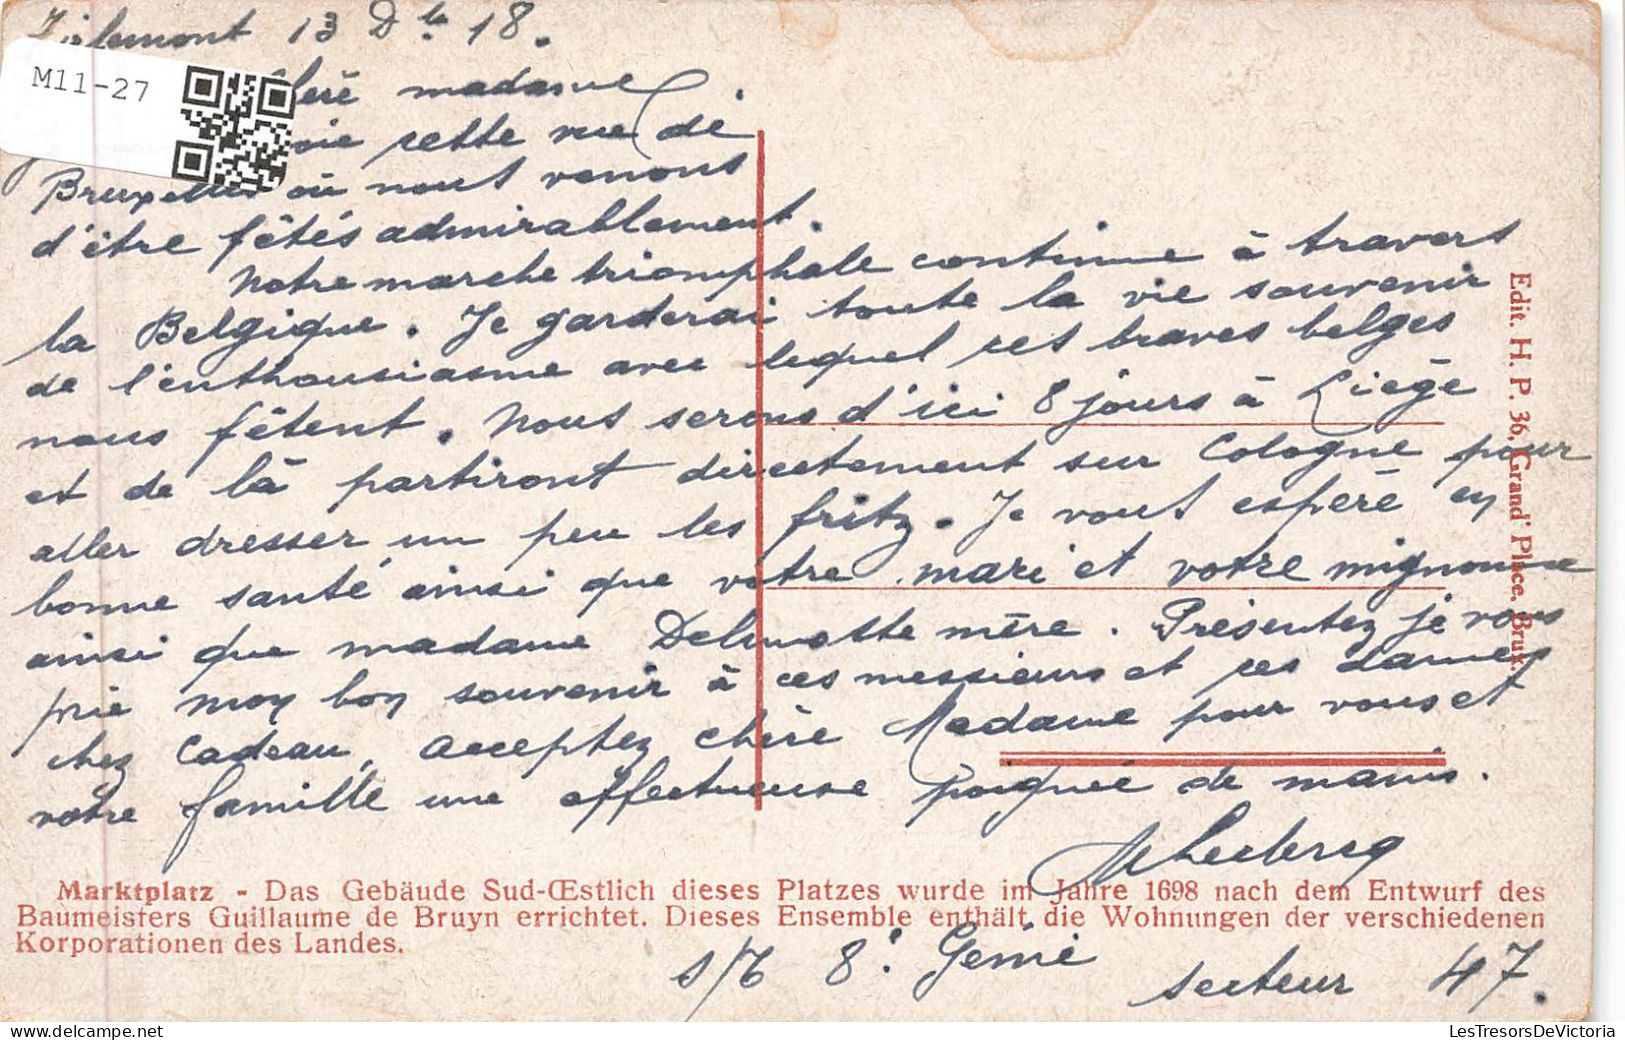 Tirlemont 13 Dbre 18.
M11-27
Chère madame
voie cette vue de
Bruxelles où nous venons
d'être fêtés admirablement.
Notre marche triomphale continue à travers
la Belgique. Je garderai toute la vie souvenir
de l'enthousiasme avec lequel ces braves belges
nous fêtent. Nous serons d'ici 8 jours à Liège
et de là partiront directement sur Cologne pour
aller dresser un peu les fritz. Je vous espère en
bonne santé ainsi que votre mari et votre mignonne
ainsi que madame Delmotte mère. Présentez je vous
prie mon bon souvenir à ces messieurs et ces dames
chez Cadeau, acceptez chère Madame pour vous et
votre famille une affectueuse poignée de mains.
Leclercq
Marktplatz - Das Gebäude Sud-Œstlich dieses Platzes wurde im Jahre 1698 nach dem Entwurf des
Baumeisters Guillaume de Bruyn errichtet. Dieses Ensemble enthält die Wohnungen der verschiedenen
Korporationen des Landes.
8e Génie
secteur 47.
Edit. H. P. 36, Grand' Place, Brux.
LesTresorsDeVictoria